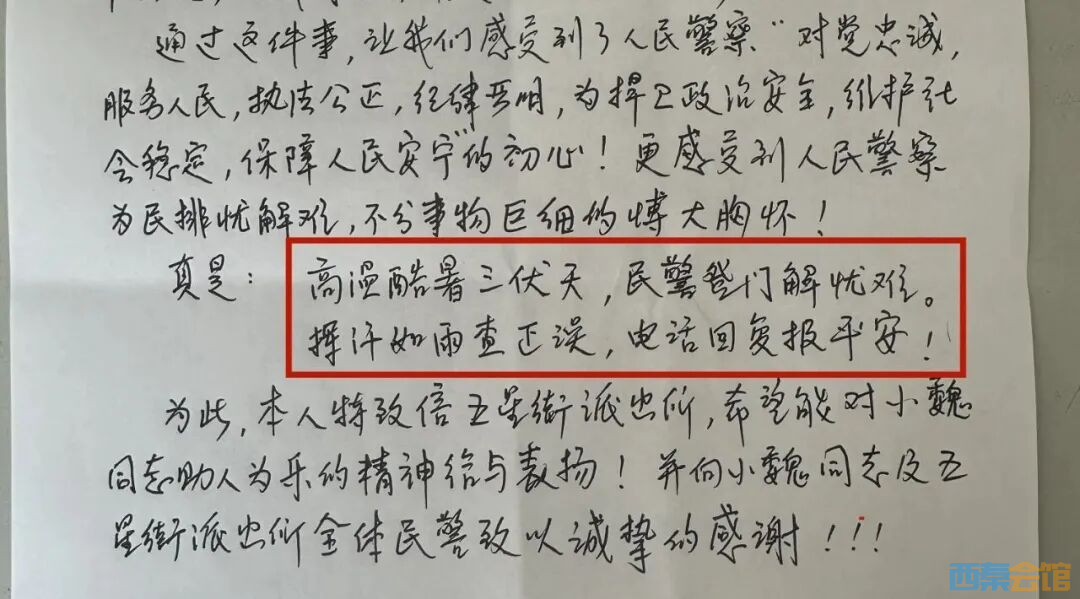 通过这件事，让我们感受到了人民警察“对党忠诚，
服务人民，执法公正，纪律严明，为捍卫政治安全，维护社
会稳定，保障人民安宁”的初心！更感受到人民警察
为民排忧解难，不分事物巨细的博大胸怀！
真是：高温酷暑三伏天，民警登门解忧难。
挥汗如雨查正误，电话回复报平安！
为此，本人特致信五星街派出所，希望能对小魏
同志助人为乐的精神给与表扬！并向小魏同志及五
星街派出所全体民警致以诚挚的感谢！！！
西秦会馆